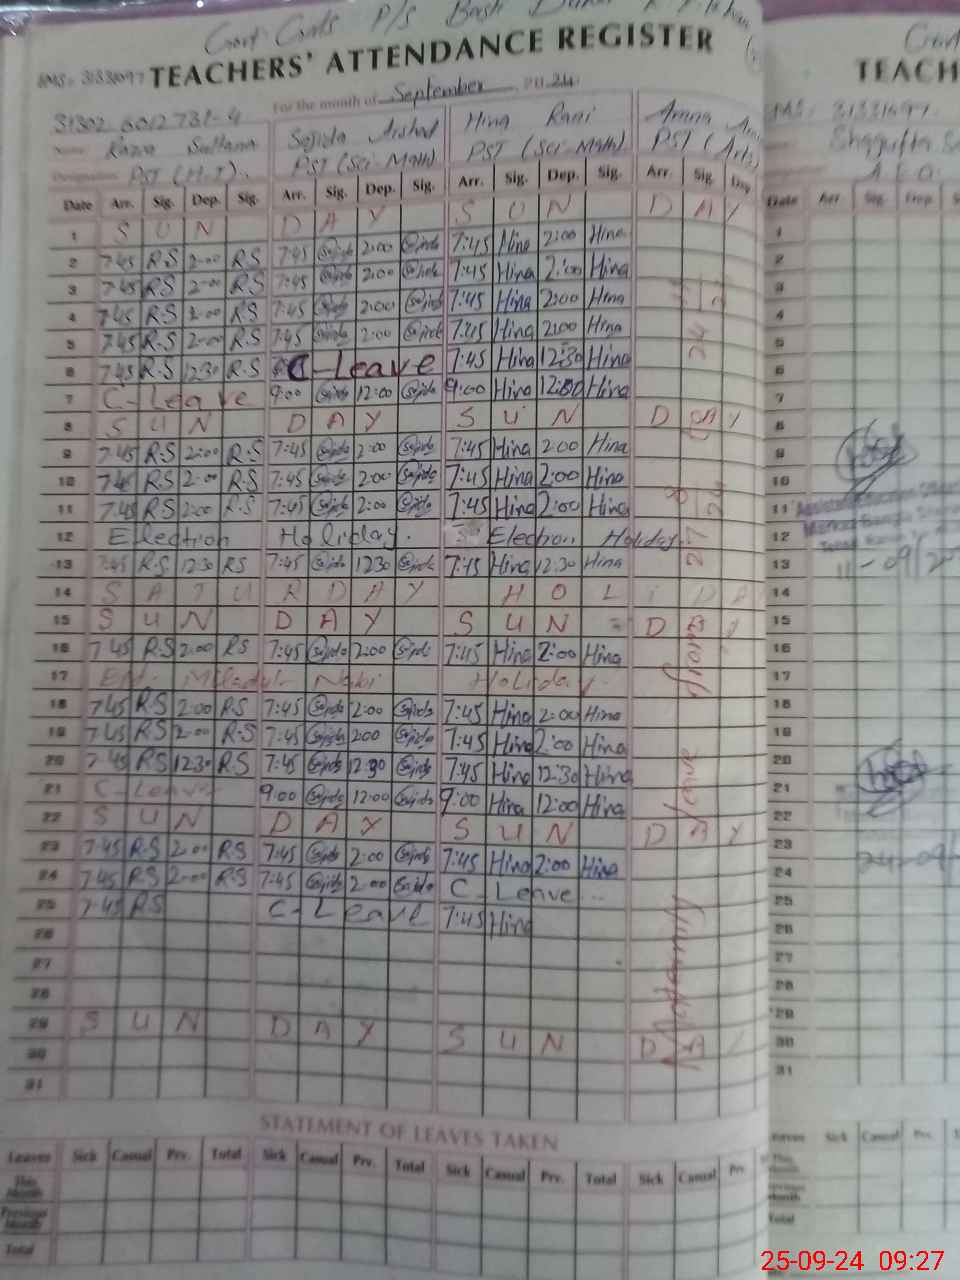 Govt. Girls P/S Basti
TEACHERS' ATTENDANCE REGISTER
EMIS: 31331097
For the month of September 2024
31302 6012731-4
Name Razia Sultana Sajida Arshad Hina Rani Amna
Designation PST (H.T). PST (Sci-Math) PST (Sci-Math) PST (Arts)
Date Arr. Sig. Dep. Sig. Arr. Sig. Dep. Sig. Arr. Sig. Dep. Sig. Arr. Sig. Dep
1 S U N D A Y S U N D A Y
2 7:45 R.S 2:00 R.S 7:45 Sajida 2:00 Sajida 7:45 Hina 2:00 Hina
3 7:45 R.S 2:00 R.S 7:45 Sajida 2:00 Sajida 7:45 Hina 2:00 Hina
4 7:45 R.S 2:00 R.S 7:45 Sajida 2:00 Sajida 7:45 Hina 2:00 Hina
5 7:45 R.S 2:00 R.S 7:45 Sajida 2:00 Sajida 7:45 Hina 2:00 Hina
6 7:45 R.S 12:30 R.S C-Leave 7:45 Hina 12:30 Hina
7 C-Leave 9:00 Sajida 12:00 Sajida 9:00 Hina 12:00 Hina
8 S U N D A Y S U N D A Y
9 7:45 R.S 2:00 R.S 7:45 Sajida 2:00 Sajida 7:45 Hina 2:00 Hina
10 7:45 R.S 2:00 R.S 7:45 Sajida 2:00 Sajida 7:45 Hina 2:00 Hina
11 7:45 R.S 2:00 R.S 7:45 Sajida 2:00 Sajida 7:45 Hina 2:00 Hina
12 Election Holiday. Election Holiday
13 7:45 R.S 12:30 RS 7:45 Sajida 12:30 Sajida 7:45 Hina 12:30 Hina
14 S A T U R D A Y H O L I D A
15 S U N D A Y S U N D A Y
16 7:45 R.S 2:00 RS 7:45 Sajida 2:00 Sajida 7:45 Hina 2:00 Hina
17 Eid Milad ul Nabi Holiday
18 7:45 R.S 2:00 RS 7:45 Sajida 2:00 Sajida 7:45 Hina 2:00 Hina
19 7:45 R.S 2:00 R.S 7:45 Sajida 200 Sajida 7:45 Hina 2:00 Hina
20 7:45 R.S 12:30 R.S 7:45 Sajida 12:30 Sajida 7:45 Hina 12:30 Hina
21 C-Leave 9:00 Sajida 12:00 Sajida 9:00 Hina 12:00 Hina
22 S U N D A Y S U N D A Y
23 7:45 R.S 2:00 R.S 7:45 Sajida 2:00 Sajida 7:45 Hina 2:00 Hina
24 7:45 R.S 2:00 R.S 7:45 Sajida 2:00 Sajida C-Leave
25 7:45 RS C-Leave 7:45 Hina
26
27
28
29 S U N D A Y S U N D A Y
30
31
Maternity leave from
STATEMENT OF LEAVES TAKEN
Leaves Sick Casual Prv. Total Sick Casual Prv. Total Sick Casual Prv. Total Sick Casual Prv.
This Month
Previous Month
Total
TEACH
31331097
Shagufta
Date Arr. Sig. Dep.
1
2
3
4
5
6
7
8
9
10
11
12
13
14
15
16
17
18
19
20
21
22
23
24
25
26
27
28
29
30
31
11-09/20
24-09/
Leaves Sick Casual Prv.
Total
25-09-24 09:27